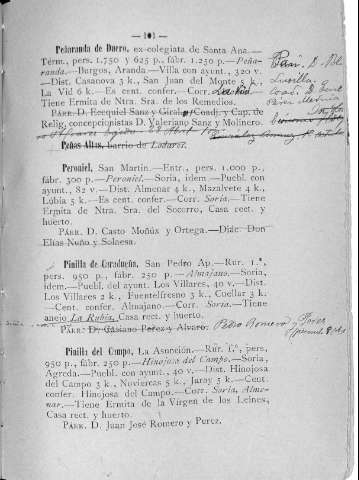 — 101 —
Peñaranda de Duero, ex-colegiata de Santa Ana.—
Térm., pers. 1.750 y 625 p., fábr. 1.250 p.—Peña-
randa.—Burgos, Aranda.—Villa con ayunt., 320 v.
—Dist. Casanova 3 k., San Juan del Monte 5 k.,
La Vid 6 k.—Es cent. confer.—Corr. La Vid.—
Tiene Ermita de Ntra. Sra. de los Remedios.
PÁRR. D. Ezequiel Sanz y Giral.—Coadj. y Cap. de
Relig. concepcionistas D. Valeriano Sanz y Molinero.
Peñas Altas, barrio de Lodares.
Peroniel, San Martín.—Entr., pers. 1.000 p.,
fábr. 300 p.—Peroniel.—Soria, idem.—Puebl. con
ayunt., 82 v.—Dist. Almenar 4 k., Mazalvete 4 k.,
Lúbia 5 k.—Es cent. confer.—Corr. Soria.—Tiene
Ermita de Ntra. Sra. del Socorro, Casa rect. y
huerto.
PÁRR. D. Casto Moñúx y Ortega.—Diác. Don
Elías Nuño y Solaesa.
Pinilla de Caradueña, San Pedro Ap.—Rur. 1.ª,
pers. 950 p., fábr. 250 p.—Almajano.—Soria,
idem.—Puebl. del ayunt. Los Villares, 40 v.—Dist.
Los Villares 2 k., Fuentelfresno 3 k., Cuéllar 3 k.
—Cent. confer. Almajano.—Corr. Soria.—Tiene
anejo La Rubia, Casa rect. y huerto.
PÁRR. D. Casiano Perez y Alvaro. Pedro Romero y Perez
Pinilla del Campo, La Asunción.—Rur. 1.ª, pers.
950 p., fábr. 250 p.—Hinojosa del Campo.—Soria,
Agreda.—Puebl. con ayunt., 40 v.—Dist. Hinojosa
del Campo 3 k., Noviercas 5 k., Jaray 5 k.—Cent.
confer. Hinojosa del Campo.—Corr. Soria, Alme-
nar.—Tiene Ermita de la Virgen de los Leines,
Casa rect. y huerto.
PÁRR. D. Juan José Romero y Perez.